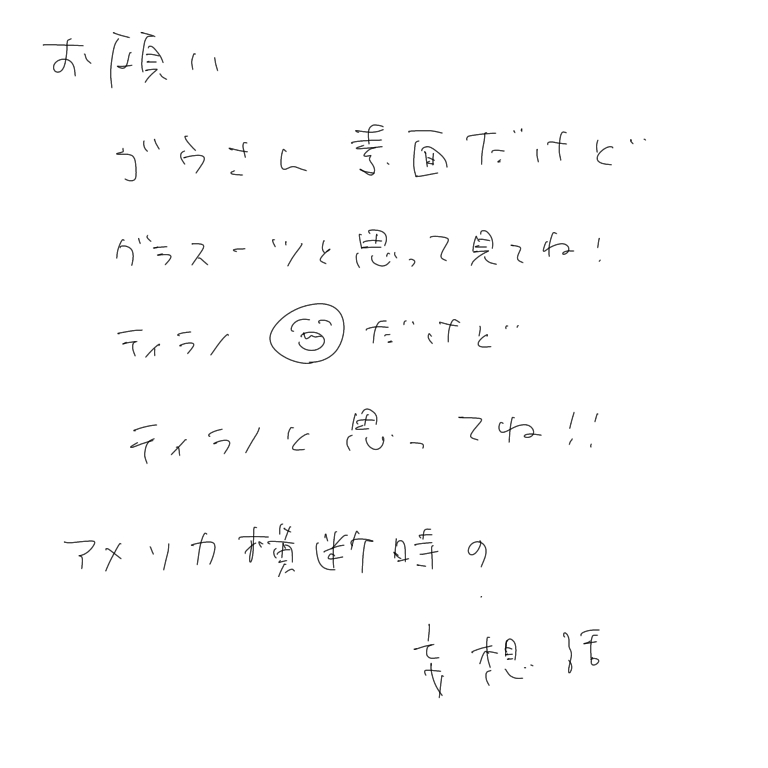 お願い
がうさん 素面だけど
グラスーツと思って見てね!
ティラノ だけど
ティラノと思ってね!!
アメリカ横断時の
妄想話